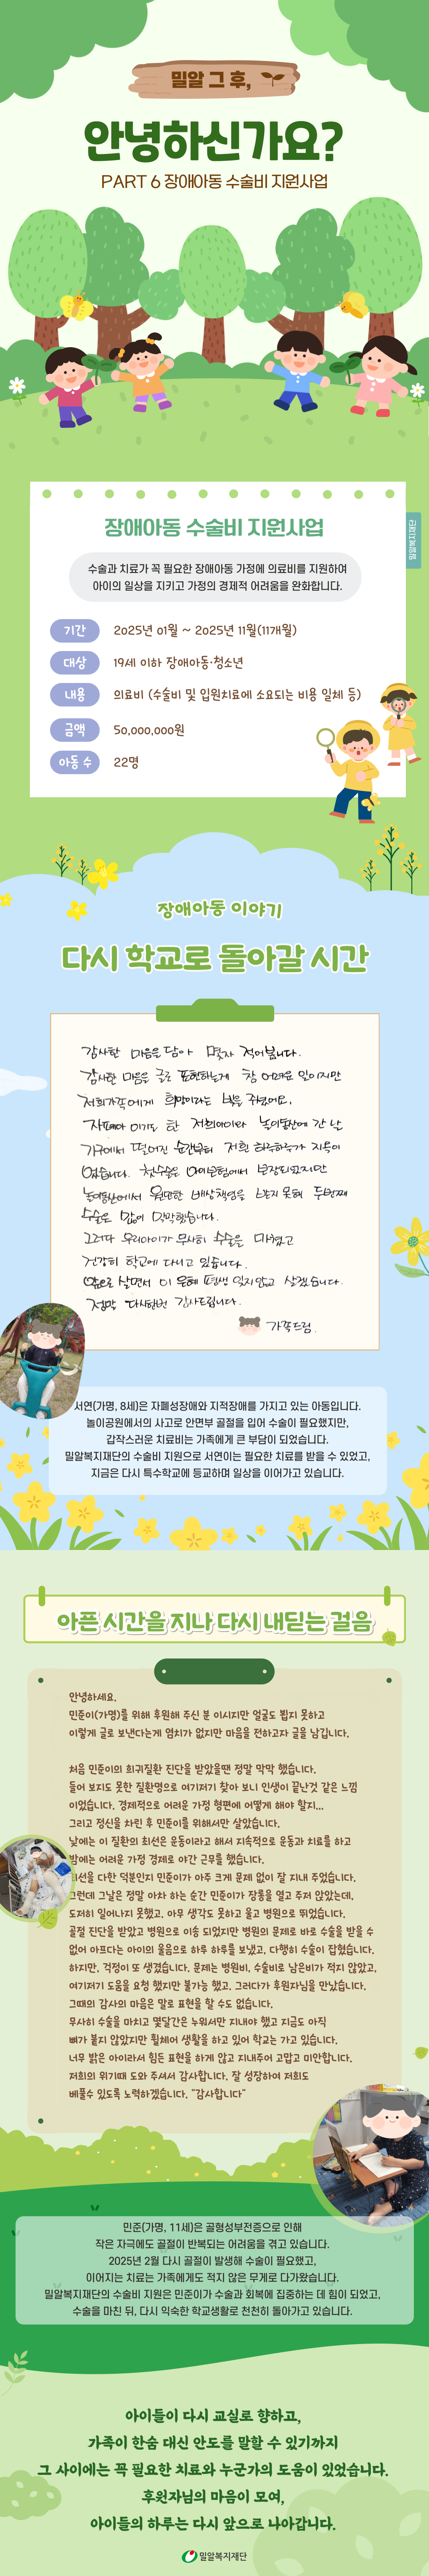 밀알 그 후,
안녕하신가요?
PART 6 장애아동 수술비 지원사업
밀알복지재단
장애아동 수술비 지원사업
수술과 치료가 꼭 필요한 장애아동 가정에 의료비를 지원하여
아이의 일상을 지키고 가정의 경제적 어려움을 완화합니다.
기간 2025년 01월 ~ 2025년 11월(11개월)
대상 19세 이하 장애아동·청소년
내용 의료비 (수술비 및 입원치료에 소요되는 비용 일체 등)
금액 50,000,000원
아동 수 22명
장애아동 이야기
다시 학교로 돌아갈 시간
감사한 마음을 담아 몇자 적어봅니다.
감사한 마음을 글로 표현하는게 참 어려운 일이지만
저희가족에게 희망이라는 빛을 주셨어요.
자폐아 이기도 한 저희아이와 놀이동산에 간 날
기구에서 떨어진 순간부터 저흰 하루하루가 지옥이
었습니다. 첫수술은 여이보험에서 보장되었지만
놀이동산에서 원만한 배상책임을 느끼지 못해 두번째
수술은 많이 막막했습니다.
그러다 우리아이가 무사히 수술을 마쳤고
건강히 학교에 다시고 있습니다.
앞으로 살면서 이 은혜 평생 잊지않고 살겠습니다.
정말 다시한번 감사드립니다.
가족드림.
서연(가명, 8세)은 자폐성장애와 지적장애를 가지고 있는 아동입니다.
놀이공원에서의 사고로 안면부 골절을 입어 수술이 필요했지만,
갑작스러운 치료비는 가족에게 큰 부담이 되었습니다.
밀알복지재단의 수술비 지원으로 서연이는 필요한 치료를 받을 수 있었고,
지금은 다시 특수학교에 등교하며 일상을 이어가고 있습니다.
아픈 시간을 지나 다시 내딛는 걸음
안녕하세요.
민준이(가명)를 위해 후원해 주신 분 이시지만 얼굴도 뵙지 못하고
이렇게 글로 보낸다는게 염치가 없지만 마음을 전하고자 글을 남깁니다.
처음 민준이의 희귀질환 진단을 받았을땐 정말 막막 했습니다.
들어 보지도 못한 질환명으로 여기저기 찾아 보니 인생이 끝난것 같은 느낌
이었습니다. 경제적으로 어려운 가정 형편에 어떻게 해야 할지...
그리고 정신을 차린 후 민준이를 위해서만 살았습니다.
낮에는 이 질환의 최선은 운동이라고 해서 지속적으로 운동과 치료를 하고
밤에는 어려운 가정 경제로 야간 근무를 했습니다.
최선을 다한 덕분인지 민준이가 아주 크게 문제 없이 잘 지내 주었습니다.
그런데 그날은 정말 아차 하는 순간 민준이가 장롱을 열고 주저 앉았는데,
도저히 일어나지 못했고, 아무 생각도 못하고 울고 병원으로 뛰었습니다.
골절 진단을 받았고 병원으로 이송 되었지만 병원의 문제로 바로 수술을 받을 수
없어 아프다는 아이의 울음으로 하루 하루를 보냈고, 다행히 수술이 잡혔습니다.
하지만, 걱정이 또 생겼습니다. 문제는 병원비, 수술비로 남은비가 적지 않았고,
여기저기 도움을 요청 했지만 불가능 했고, 그러다가 후원자님을 만났습니다.
그때의 감사의 마음은 말로 표현을 할 수도 없습니다.
무사히 수술을 마치고 몇달간은 누워서만 지내야 했고 지금도 아직
뼈가 붙지 않았지만 휠체어 생활을 하고 있어 학교는 가고 있습니다.
너무 밝은 아이라서 힘든 표현을 하게 않고 지내주어 고맙고 미안합니다.
저희의 위기때 도와 주셔서 감사합니다. 잘 성장하여 저희도
베풀수 있도록 노력하겠습니다. "감사합니다"
민준(가명, 11세)은 골형성부전증으로 인해
작은 자극에도 골절이 반복되는 어려움을 겪고 있습니다.
2025년 2월 다시 골절이 발생해 수술이 필요했고,
이어지는 치료는 가족에게도 적지 않은 무게로 다가왔습니다.
밀알복지재단의 수술비 지원은 민준이가 수술과 회복에 집중하는 데 힘이 되었고,
수술을 마친 뒤, 다시 익숙한 학교생활로 천천히 돌아가고 있습니다.
아이들이 다시 교실로 향하고,
가족이 한숨 대신 안도를 말할 수 있기까지
그 사이에는 꼭 필요한 치료와 누군가의 도움이 있었습니다.
후원자님의 마음이 모여,
아이들의 하루는 다시 앞으로 나아갑니다.
밀알복지재단